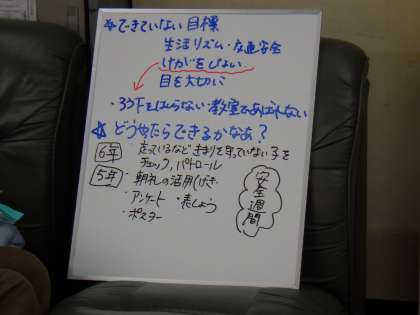 ☆できていない目標
生活リズム・交通安全
けがをしない
目を大切に
・ろう下をはしらない・教室であばれない
☆どうやったらできるかなあ?
6年 ・走っているなどきまりを守っていない子を
チェック、パトロール
5年 ・朝礼の活用(げき
・アンケート ・表しょう
・ポスター
安全週間